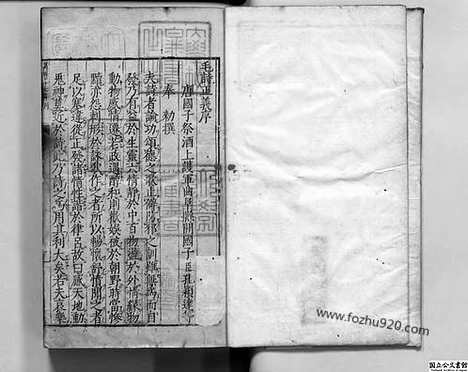 毛詩正義序
唐國子祭酒上護軍曲阜縣開國子臣孔穎達等
奉 勅撰
夫詩者論功頌德之歌止僻防邪之訓雖無為而自
發乃有益於生靈六情靜於中百物盪於外情緣物
動物感情遷若政遇醇和則歡娛被於朝野時當慘
黷亦怨刺形於詠歌作之者所以暢懷舒憤聞之者
足以塞違從正發諸情性諧於律呂故曰感天地動
鬼神莫近於詩此乃詩之為用其利大矣若夫哀樂
www.fozhu920.com
国立公文書館